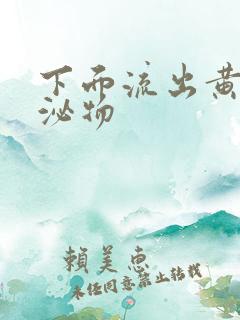 下而流出黄
泌物
賴美惠
未经同意禁止转载